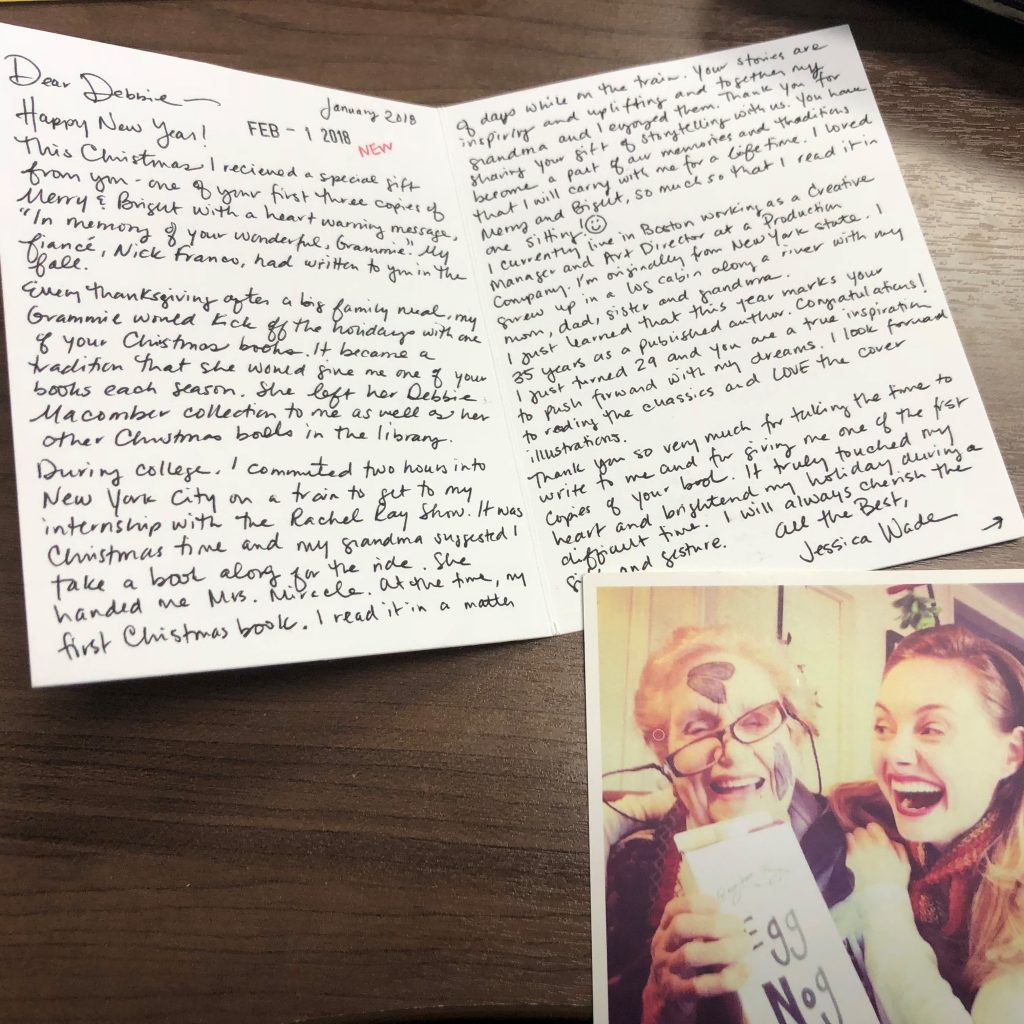 Dear Debbie
January 2018
Happy New Year!
FEB - 1 2018
NEW
This Christmas I recieved a special gift
from you - one of your first three copies of
Merry & Bright with a heart warming message,
"In memory of your wonderful, Grammie." My
fiancé, Nick Franco, had written to you in the
fall.
Every Thanksgiving after a big family meal, my
Grammie would kick off the holidays with one
of your Christmas books. It became a
tradition that she would give me one of your
books each season. She left her Debbie
Macomber collection to me as well as her
other Christmas books in the library.
During college, I commuted two hours into
New York City on a train to get to my
internship with the Rachel Ray Show. It was
Christmas time and my grandma suggested I
take a book along for the ride. She
handed me Mrs. Miracle. At the time, my
first Christmas book. I read it in a matter
of days while on the train. Your stories are
inspiring and uplifting and together my
grandma and I enjoyed them. Thank you for
sharing your gift of storytelling with us. You have
become a part of our memories and traditions
that I will carry with me for a lifetime. I loved
Merry and Bright, so much so that I read it in
one sitting!
I currently live in Boston working as a Creative
Manager and Art Director at a Production
Company. I'm originally from New York state. I
grew up in a log cabin along a river with my
mom, dad, sister and grandma.
I just learned that this year marks your
35 years as a published author. Congratulations!
I just turned 29 and you are a true inspiration
to push forward with my dreams. I look forward
to reading the classics and LOVE the cover
illustrations.
Thank you so very much for taking the time to
write to me and for giving me one of the first
copies of your book. It truly touched my
heart and brightend my holiday during a
difficult time. I will always cherish the
and gesture.
All the Best,
Jessica Wade
Egg
Nog